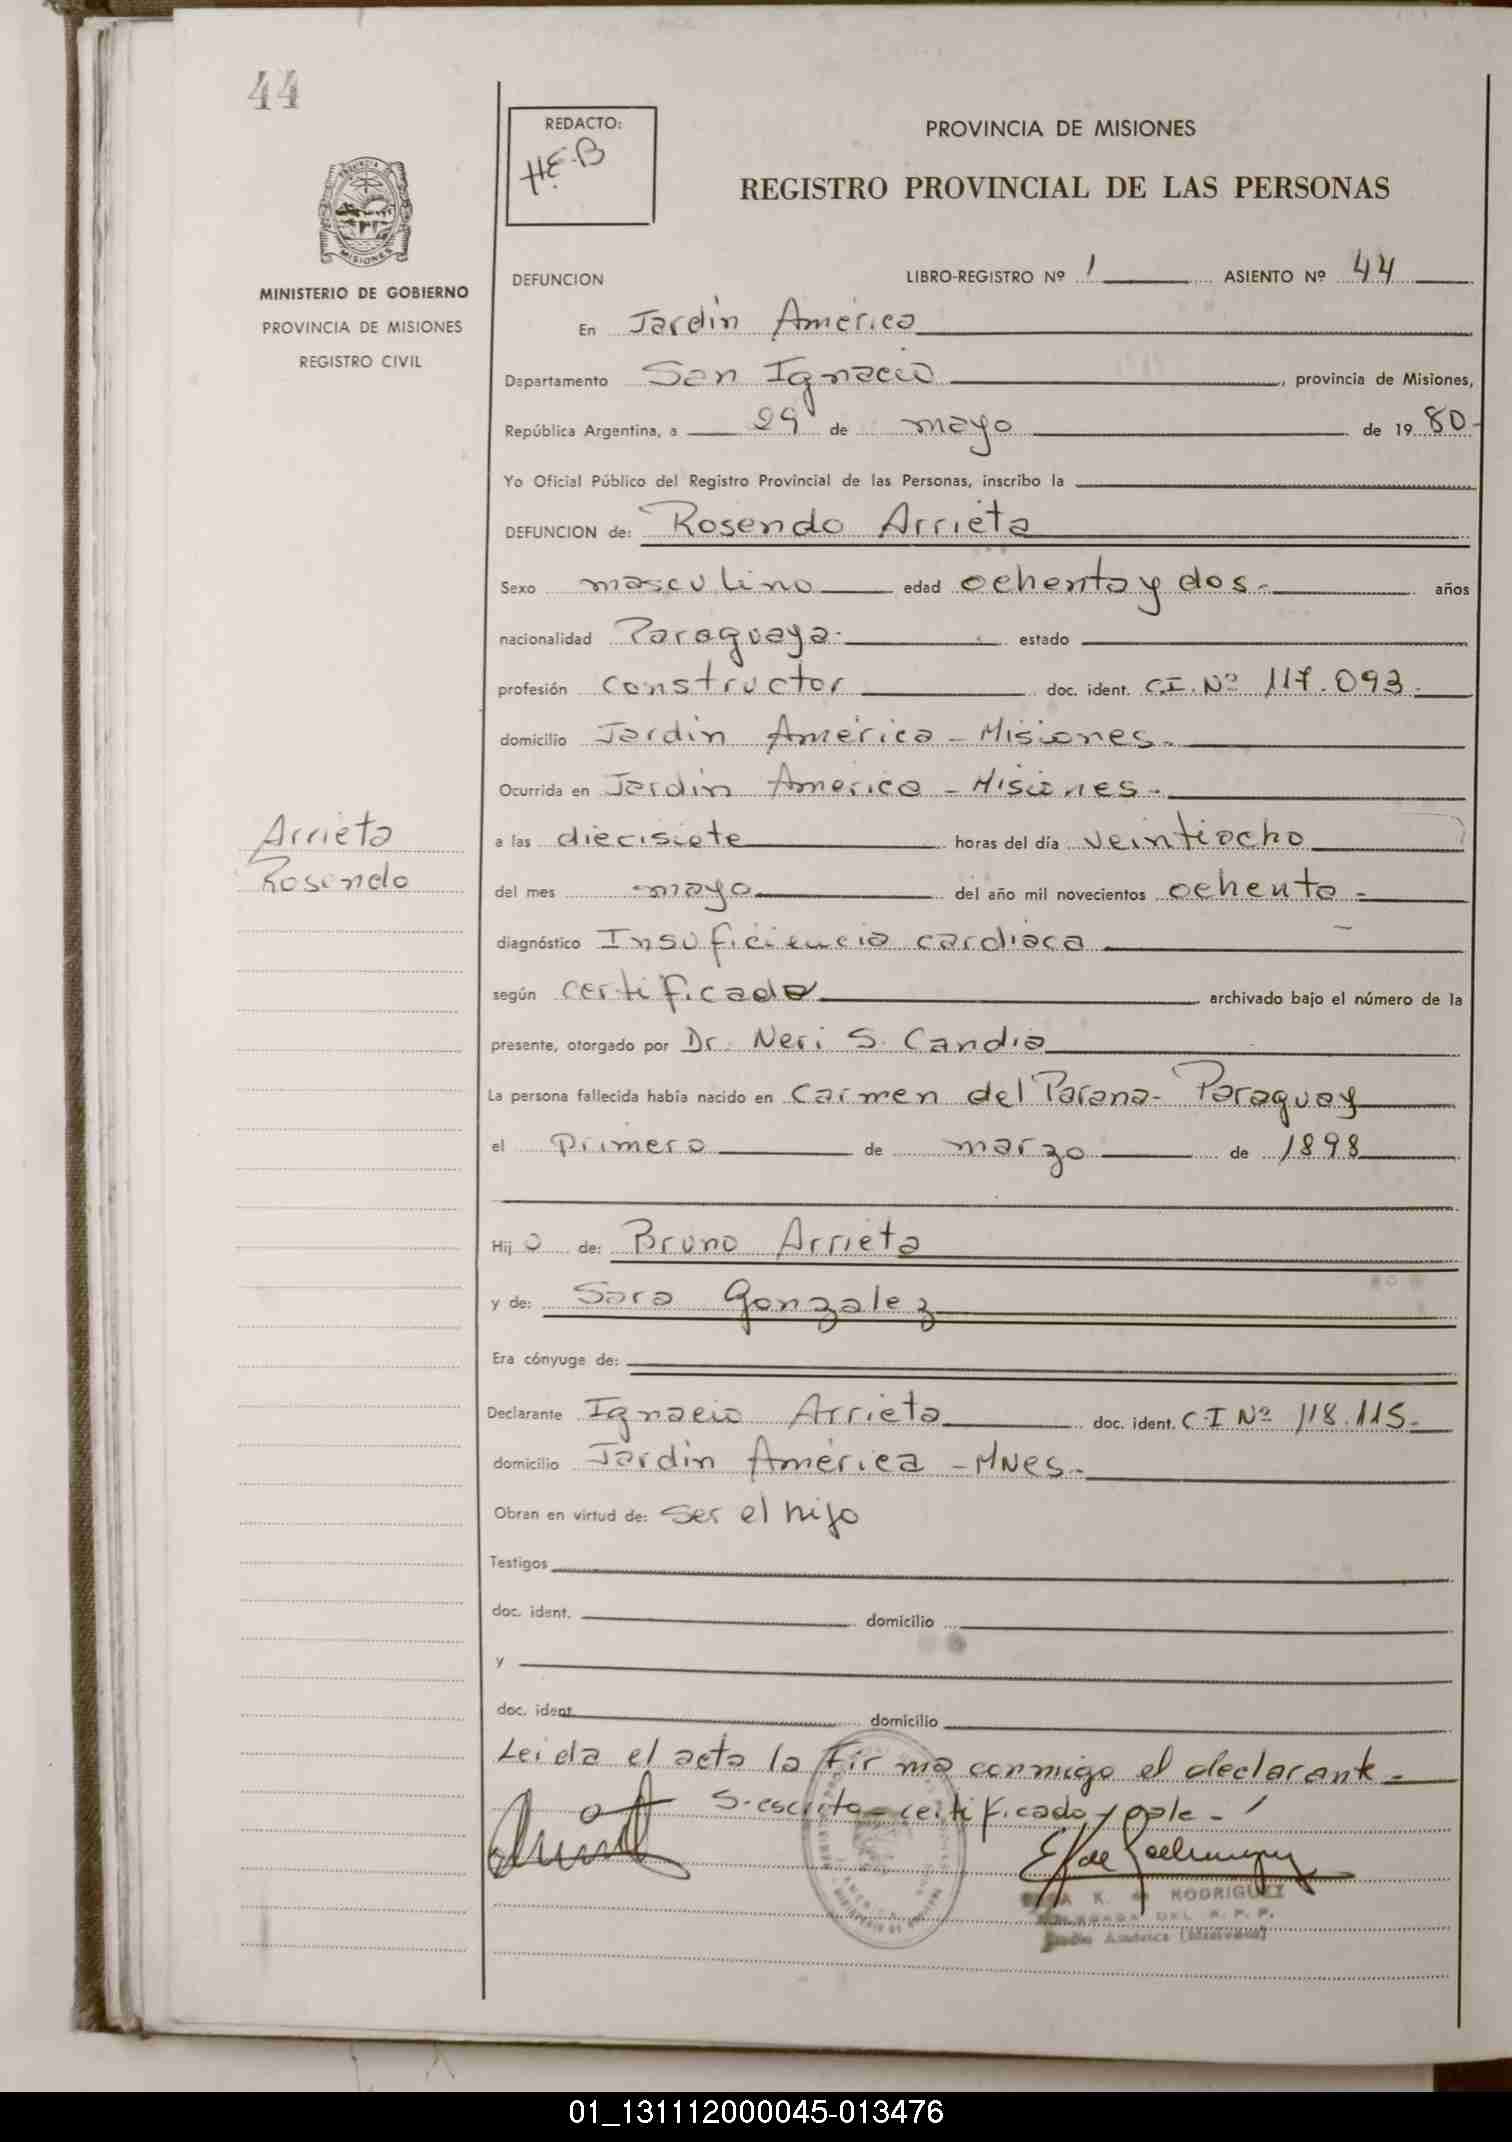 44
REDACTO:
H.E.B
PROVINCIA DE MISIONES
REGISTRO PROVINCIAL DE LAS PERSONAS
PROVINCIA
MISIONES
MINISTERIO DE GOBIERNO
PROVINCIA DE MISIONES
REGISTRO CIVIL
DEFUNCION LIBRO-REGISTRO Nº 1 ASIENTO Nº 44
En Jardín América
Departamento San Ignacio, provincia de Misiones,
República Argentina, a 29 de mayo de 19 80-
Yo Oficial Público del Registro Provincial de las Personas, inscribo la
DEFUNCION de: Rosendo Arrieta
Sexo masculino edad ochenta y dos- años
nacionalidad Paraguaya- estado
profesión constructor doc. ident. C.I. Nº 117.093.
domicilio Jardín América - Misiones-
Ocurrida en Jardín América - Misiones-
a las diecisiete horas del día veintiocho
del mes mayo del año mil novecientos ochenta-
diagnóstico Insuficiencia cardiaca
según certificado archivado bajo el número de la
presente, otorgado por Dr. Neri S. Candia
La persona fallecida había nacido en Carmen del Parana- Paraguay
el primero de marzo de 1898
Hijo de: Bruno Arrieta
y de: Sara Gonzalez
Era cónyuge de:
Declarante Ignacio Arrieta doc. ident. C.I Nº 118.115-
domicilio Jardín América - MNes-
Obran en virtud de: ser el hijo
Testigos
doc. ident. domicilio
y
doc. ident. domicilio
Leida el acta la firma conmigo el declarante-
S. escrito- certificado, vale-
K. de RODRIGUEZ
DEL R. P. P.
América (Misiones)
Arrieta
Rosendo
01_131112000045-013476